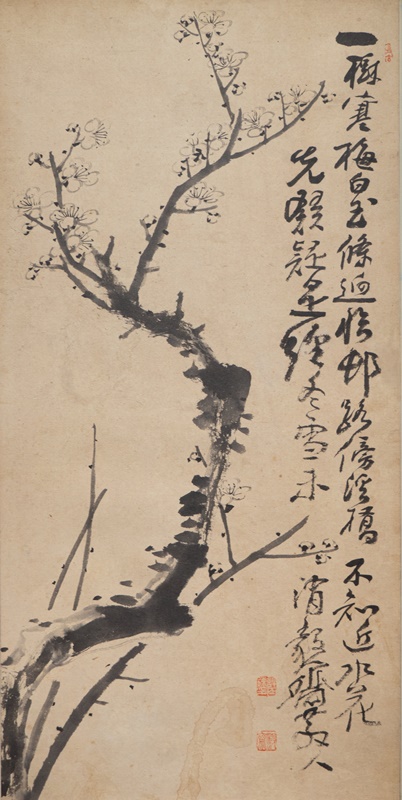 一樹寒梅白玉條迥臨邨路傍溪橋不知近水花
先發疑是經冬雪未消散人